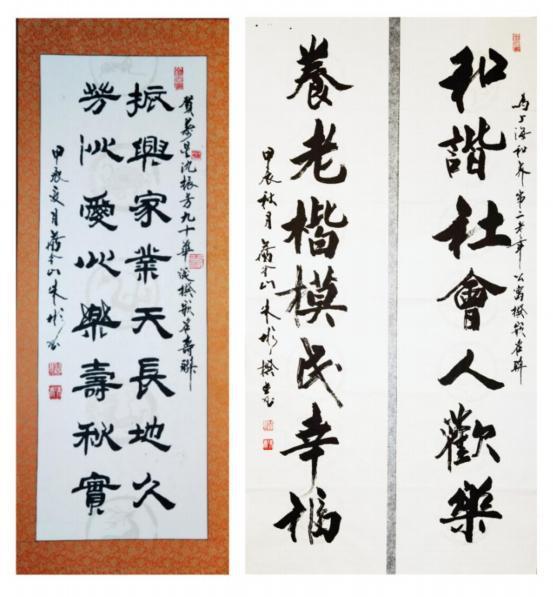 賀壽星沈振芳九十華誕撰嵌名壽聯
振興家業天長地久
芳沁愛心樂壽秋實
甲辰夏月舊金山朱彬書
為上海和養第二老年公寓撰嵌名聯
和諧社會人歡樂
養老楷模民幸福
甲辰秋月舊金山朱彬撰書